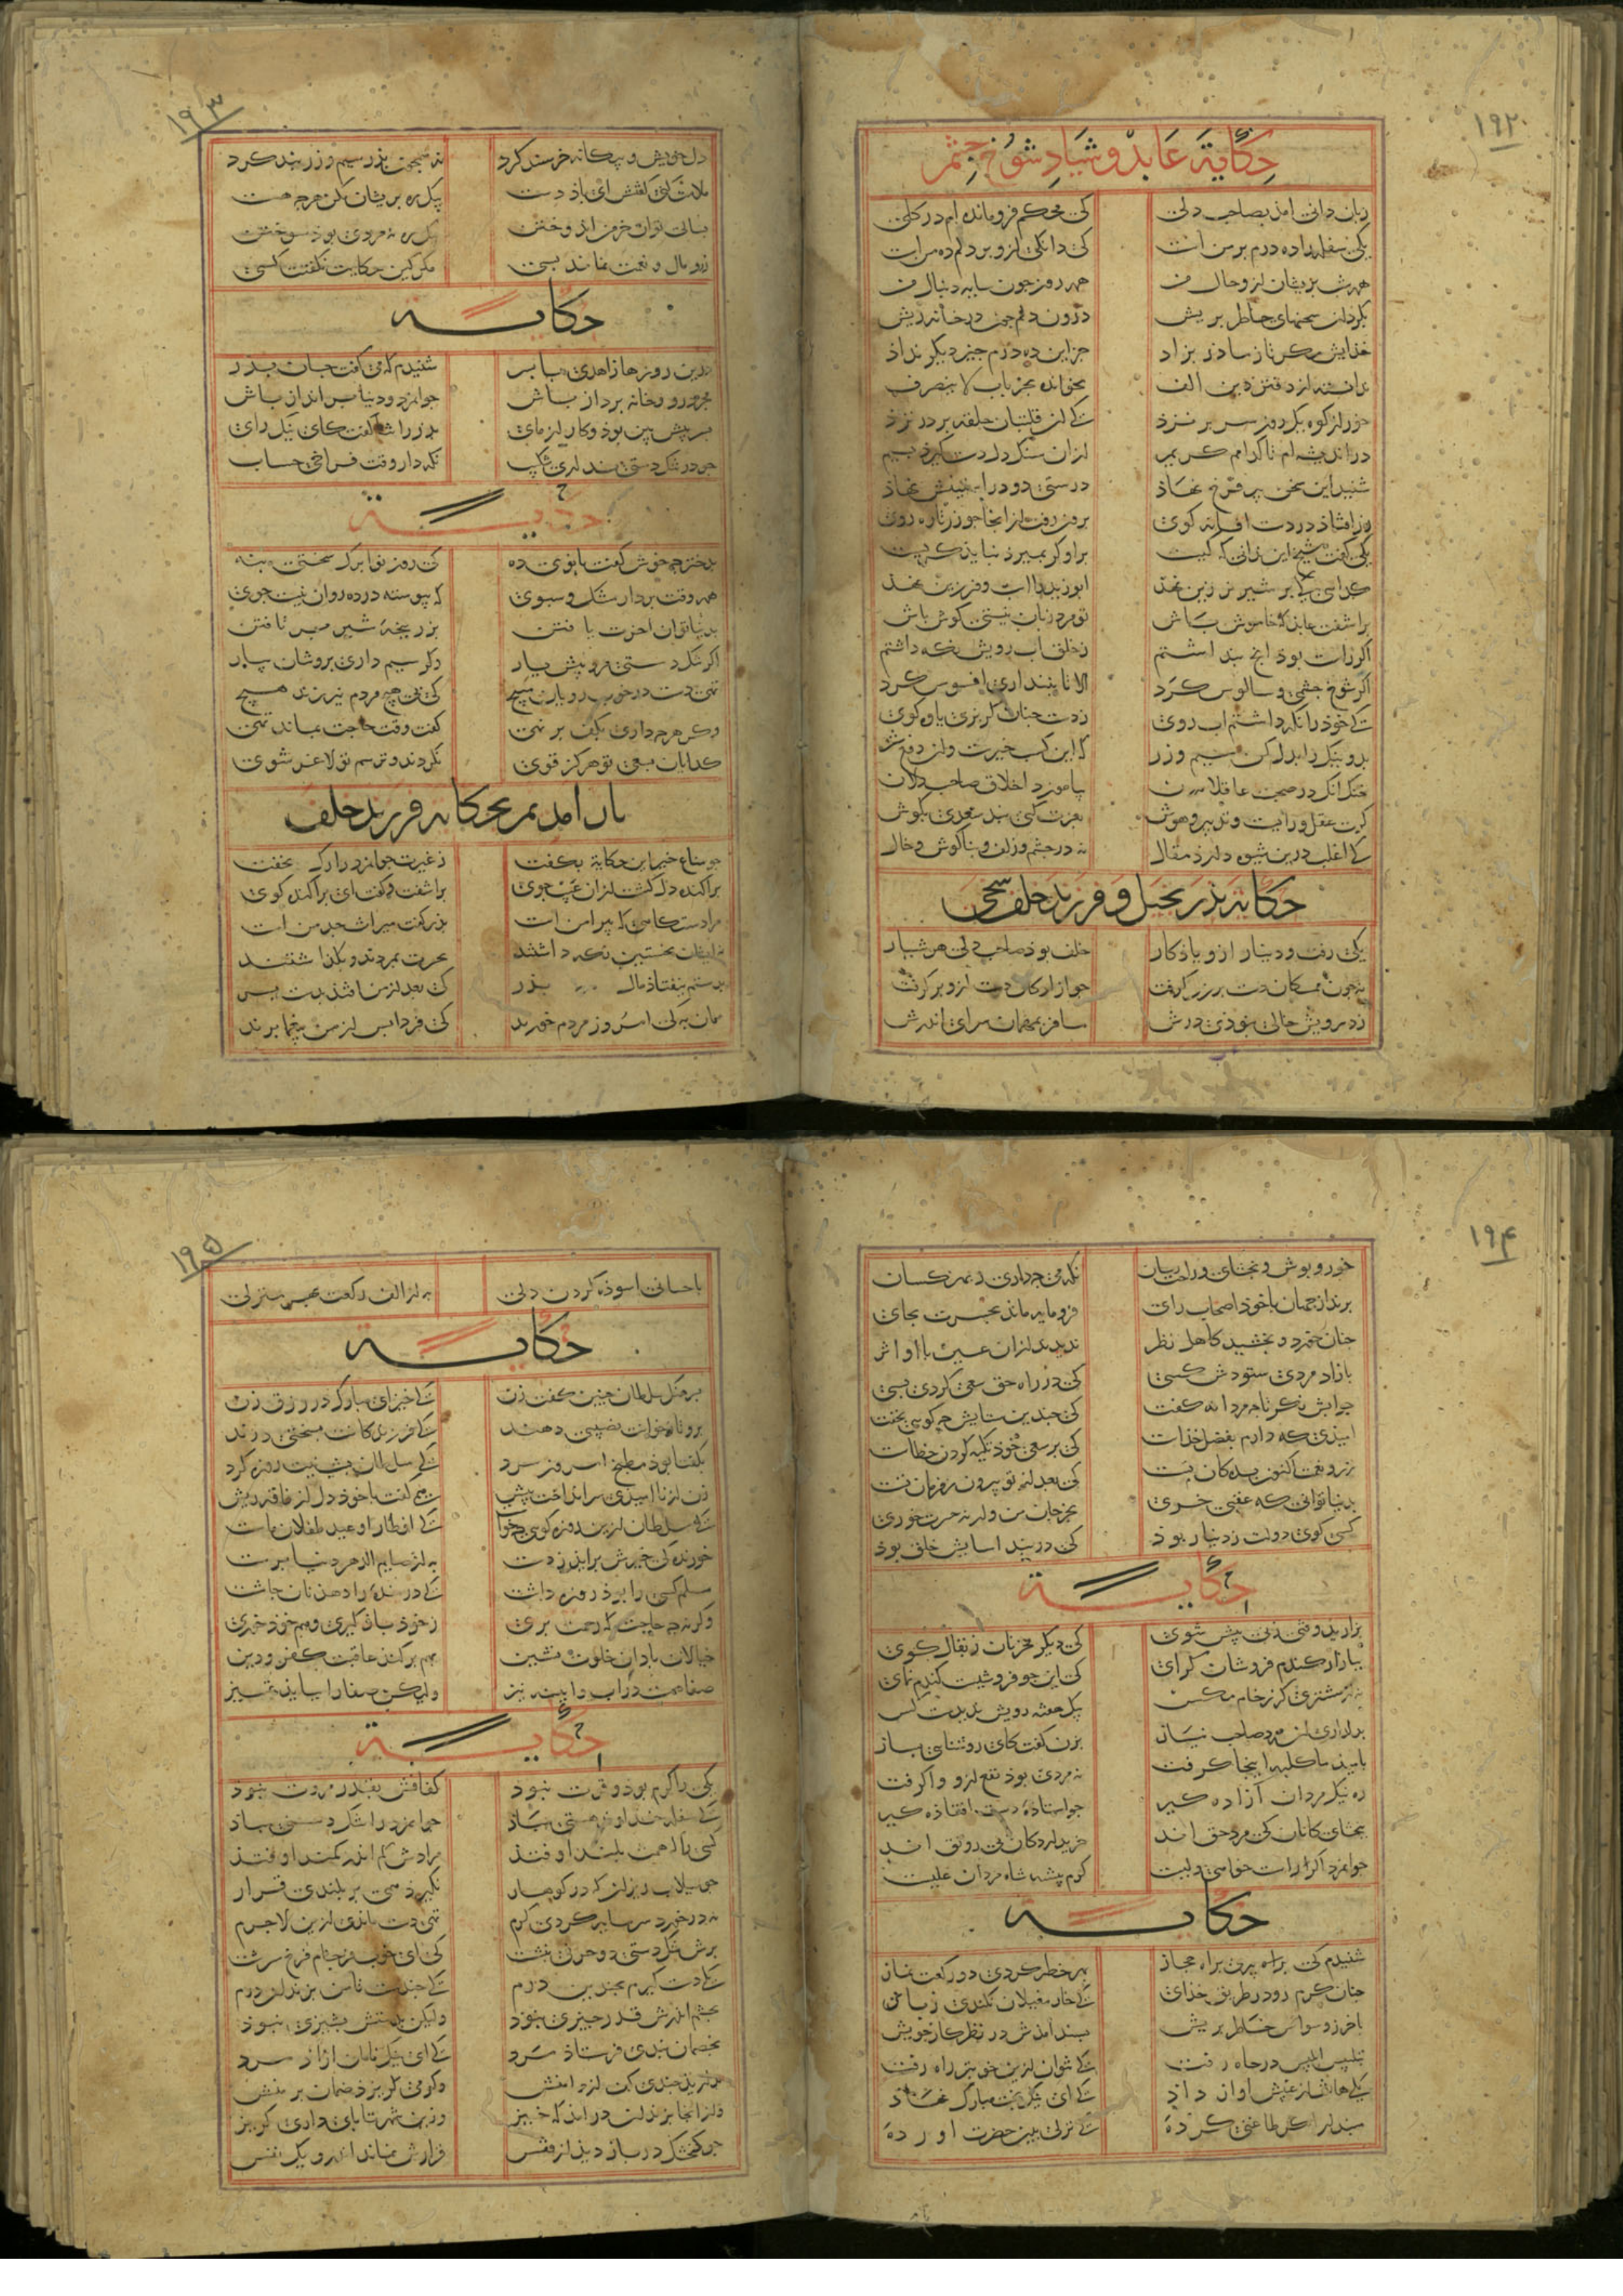 ۱۹۲
حکایة عابد و شیاد شوخ چشم
زبان دانی امذ بصاحب دلی کی محکم فرو مانده ام در کلی
یکی سفله را ده درم بر من است کی دانکی ازو بر دلم ده من است
همه شب پریشان ازو حال من همه روز جون سایه دنبال من
بکرد از سخنهای خاطر پریش درون دلم جون در خانه ریش
خذایش مکر تا ز ماذر بزاد جز این ده درم جیز دیکر نداذ
ندانسته از دفتر دین الف نخوانده بجز باب لا ینصرف
خور از کوه یک روز سر بر نزذ کی ان قلتبان حلقه بر در نزذ
در اندیشه ام تا کدامم کریم ازان سنک دل دست کیرذ بسیم
شنید این سخن پیر فرخ نهاذ درستی دو در استینش نهاذ
زر افتاذ در دست افسانه کوی برون رفت از انجا جو زر تازه روی
یکی کفت شیخ این ندانی که کیست برو کر بمیرذ نبایذ کریست
کدایی کی بر شیر نر زین نهذ ابو زید را اسب و فرزین نهذ
براشفت عابد که خاموش باش تو مرد زبان نیستی کوش باش
اکر راست بوذ انج بنداشتم ز خلق اب رویش نکه داشتم
اکر شوخ جشمی و سالوس کرد الا تا نبنداری افسوس کرد
کی خوذ را نکه داشتم اب روی ز دست جنان کربزی یاوه کوی
بد و نیک را بذل کن سیم و زر که این کسب خیرست وان دفع شر
خنک انک در صحبت عاقلان بیاموزد اخلاق صاحب دلان
کرت عقل و رایست و تدبیر و هوش بعزت کنی بند سعدی بکوش
کی اغلب درین شیوه دارذ مقال نه در جشم و زلف و بناکوش و خال
حکایة پذر بخیل و فرزند خلف سخی
یکی رفت و دینار ازو یاذکار خلف بوذ صاحب دلی هوشیار
نه جون ممسکان دست بر زر کرفت جو ازادکان دست ازو بر کرفت
ز درویش خالی نبوذی درش مسافر بمهمان سرای اندرش
۱۹۳
دل خویش و بیکانه خرسند کرد نه همجون بذر سیم و زر بند کرد
ملامت کنی کفتش ای باذ دست بیک ره پریشان مکن هرچه هست
بسالی توان خرمن اندوختن بیک ره نه مردی بوذ سوختن
زر و مال و نعمت نماند بسی مکر کین حکایت نکفتت کسی
حکایة
درین روزها زاهدی با بسر شنیدم که می کفت جان پذر
مجرد رو و خانه برداز باش جوانمرد و دنیا برانداز باش
بسر پیش بین بوذ و کار ازمای بذر را ثنا کفت کای نیک رای
جو در تنک دستی نداری شکیب نکه دار وقت فراخی حساب
حکایة
بدختر چه خوش کفت بانوی ده کی روز نوا برک سختی بنه
همه وقت بردار مشک و سبوی که پیوسته در ده روان نیست جوی
بدنیا توان اخرت یافتن بزر پنجه شیر بر تافتن
اکر تنک دستی مرو پیش یار وکر سیم داری بیا و بیار
تهی دست در خوب رویان مپیچ کی بی هیچ مردم نیرزند هیچ
وکر هرچه داری بکف بر نهی کفت وقت حاجت بماند تهی
کدایان بسعی تو هرکز قوی نکردند و ترسم تو لاغر شوی
باز امدیم بحکایة فرزند خلف
جو مناع خیر این حکایة بکفت ز غیرت جوانمرد را رک نخفت
براکنده دل کشت ازان عیب جوی براشفت و کفت ای براکنده کوی
مرا دستکاهی که بیرامن است بذر کفت میراث جد من است
نه ایشان بخستین نکه داشتند بحسرت بمردند و بکذاشتند
بدستم بیفتاذ مال بذر کی بعد از من افتذ بدست بسر
همان به کی امروز مردم خورند کی فردا بس از من بیغما برند
۱۹۴
خور و پوش و بخشای و راحت رسان نکه می چه داری ز بهر کسان
برند از جهان با خوذ اصحاب رای فرومایه ماند بحسرت بجای
جنان خورد و بخشید کاهل نظر ندیدند ازان عین با او اثر
بازاد مردی ستودش کسی کی در راه حق سعی کردی بسی
جوابش نکر تا چه مردانه کفت کی جندین ستایش چه کویی بخفت
امیذی که دارم بفضل خذاست کی بر سعی خوذ تکیه کردن خطاست
بدنیا توانی که عقبی خری بخر جان من ورنه حسرت خوری
کسی کوی دولت ز دنیا ربوذ کی در بند اسایش خلق بوذ
حکایة
بزارید وقتی زنی پیش شوی کی دیکر مخر نان ز بقال کوی
ببازار کندم فروشان کرای کی این جو فروشیست کندم نمای
بدلداری ان مرد صاحب نیاز بزن کفت کای روشنایی بساز
بامید ما کلبه اینجا کرفت نه مردی بوذ نفع ازو وا کرفت
ره نیک مردان آزاده کیر جو استاده دست افتاذه کیر
ببخشای کانان کی مرد حق اند خریدار دکان بی رونق اند
جوانمرد اکر راست خواهی ولیست کرم پیشه شاه مردان علیست
حکایة
شنیدم کی مردی براه حجاز بهر خطوه کردی دو رکعت نماز
جنان کرم رو در طریق خذای کی خار مغیلان نکندی ز پای
باخر ز وسواس خاطر پریش بسند امذش در نظر کار خویش
بتلبیس ابلیس در جاه رفت کی نتوان ازین خوبتر راه رفت
یکی هاتف از غیبش اواز داذ کی ای نیک بخت مبارک نهاذ
مبندار اکر طاعتی کرده کی نزلی بدین حضرت اورده
۱۹۵
باحسانی اسوذه کردن دلی به از الف رکعت بهر منزلی
حکایة
بسرهنک سلطان چنین کفت زن کی خیز ای مبارک در رزق زن
برو تا ز خوانت نصیبی دهند کی فرزندکانت بسختی درند
بکفتا بوذ مطبخ امروز سرد کی سلطان بشب نیت روزه کرد
زن از ناامیدی سر انداخت پیش همی کفت با خوذ دل از فاقه ریش
کی سلطان ازین روزه کویی چه خواست کی افطار او عید طفلان ماست
خورنده کی خیرش برآید ز دست به از صایم الدهر دنیا پرست
مسلم کسی را بوذ روزه داشت کی درمنده را دهد نان چاشت
وکرنه چه حاجت که زحمت بری ز خوذ باز کیری و هم خوذ خوری
خیالات نادان خلوت نشین بهم بر کند عاقبت کفر و دین
صفاییست در آب و ایینه نیز ولیکن صفا را بباید تمیز
حکایة
یکی را کرم بوذ و قوت نبوذ کفافش بقدر مروت نبوذ
کی سفله خداوند هستی مباذ جوانمرد را تنک دستی مباذ
کسی را که همت بلند اوفتذ مرادش کم اندر کمند اوفتذ
جو سیلاب ریزان که در کوهسار نکیرذ همی بر بلندی قرار
نه در خورد سرمایه کردی کرم تنک دست بوذی ازین لاجرم
برش تنک دستی دو حرفی نبشت کی ای خوب فرجام فرخ سرشت
یکی دست کیرم بجندین درم کی جندیست تا من بزندان درم
بجشم اندرش قدر چیزی نبوذ ولیکن بدستش بشیزی نبوذ
بخصمان بندی فرستاذ مرد کی ای نیک نامان ازاد مرد
بدارید جندی کف از دامنش وکر می کریزد ضمان بر منش
وز انجا بزندان در امد که خیز وزین شهر تا پای داری کریز
جو کنجشک در باز دید از قفس قرارش نماند اندرو یک نفس